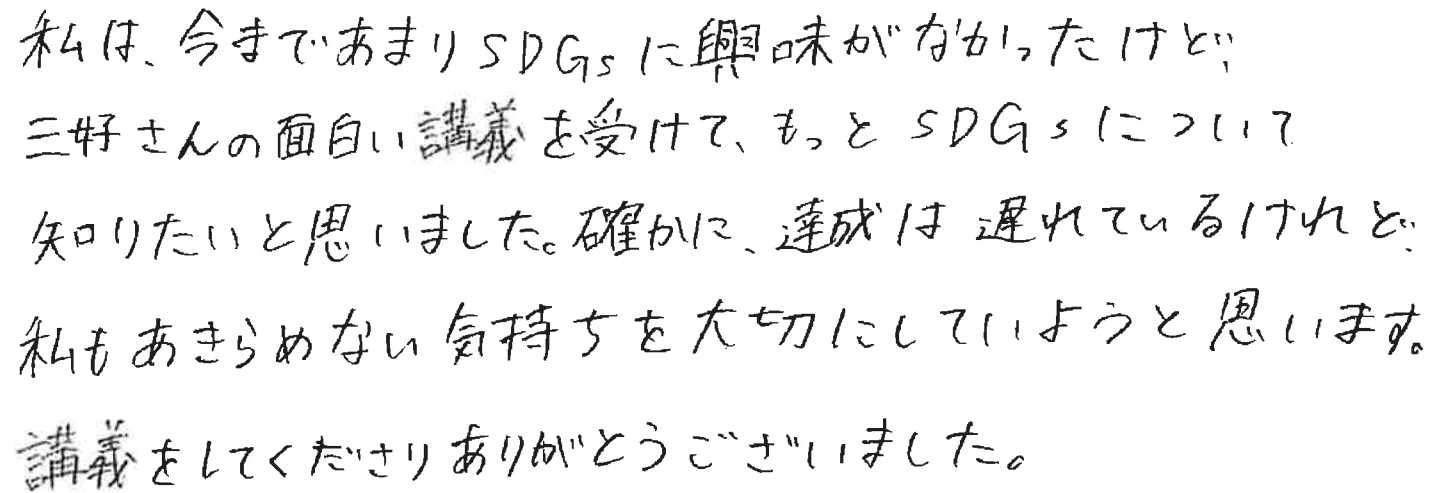 私は、今まであまりSDGsに興味がなかったけど、
三好さんの面白い講義を受けて、もっとSDGsについて
知りたいと思いました。確かに、達成は遅れているけれど、
私もあきらめない気持ちを大切にしていようと思います。
講義をしてくださりありがとうございました。